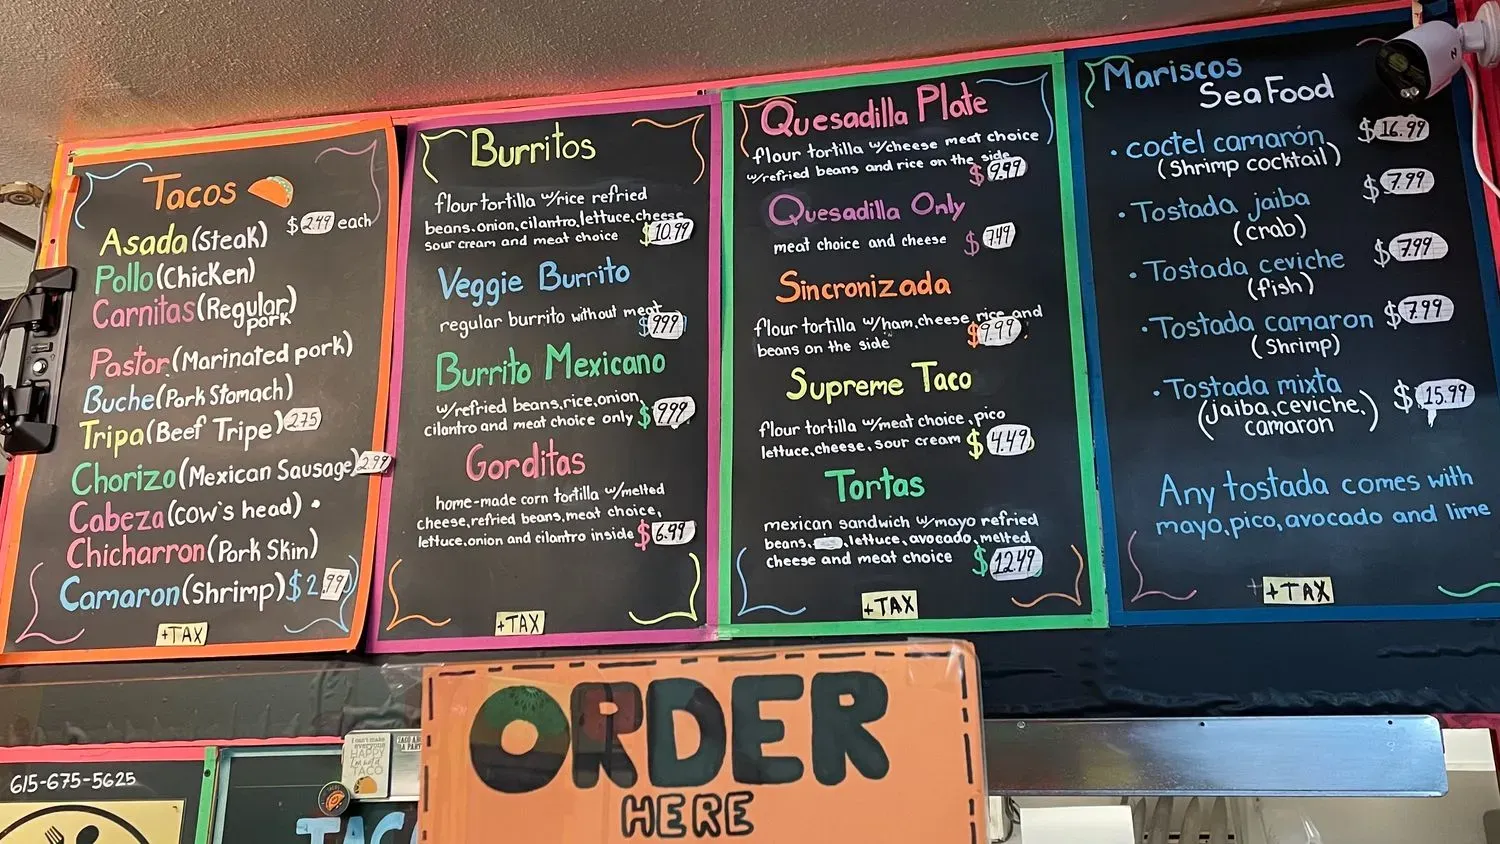 Tacos
$2.49 each
Asada (Steak)
Pollo (Chicken)
Carnitas (Regular
pork)
Pastor (Marinated pork)
Buche (Pork Stomach)
Tripa (Beef Tripe) 2.75
Chorizo (Mexican Sausage) 2.99
Cabeza (cow's head) •
Chicharron (Pork Skin)
Camaron (Shrimp) $2.99
+TAX
Burritos
flour tortilla w/rice refried
beans, onion, cilantro, lettuce, cheese
sour cream and meat choice $10.99
Veggie Burrito
regular burrito without meat
$9.99
Burrito Mexicano
w/refried beans, rice, onion,
cilantro and meat choice only $9.99
Gorditas
home-made corn tortilla w/melted
cheese, refried beans, meat choice,
lettuce, onion and cilantro inside $6.99
+TAX
Quesadilla Plate
flour tortilla w/cheese meat choice
w/refried beans and rice on the side
$9.99
Quesadilla Only
meat choice and cheese $7.49
Sincronizada
flour tortilla w/ham, cheese, rice and
beans on the side $9.99
Supreme Taco
flour tortilla w/meat choice, pico
lettuce, cheese, sour cream $4.49
Tortas
mexican sandwich w/mayo refried
beans, lettuce, avocado, melted
cheese and meat choice $12.49
+TAX
Mariscos
Sea Food
• coctel camarón $16.99
(Shrimp cocktail)
• Tostada jaiba $7.99
(crab)
• Tostada ceviche $7.99
(fish)
• Tostada camaron $7.99
(Shrimp)
• Tostada mixta $15.99
(jaiba, ceviche,
camaron)
Any tostada comes with
mayo, pico, avocado and lime
+TAX
ORDER
HERE
615-675-5625
I can't make
everyone
HAPPY
I'm not a
TACO
TAC